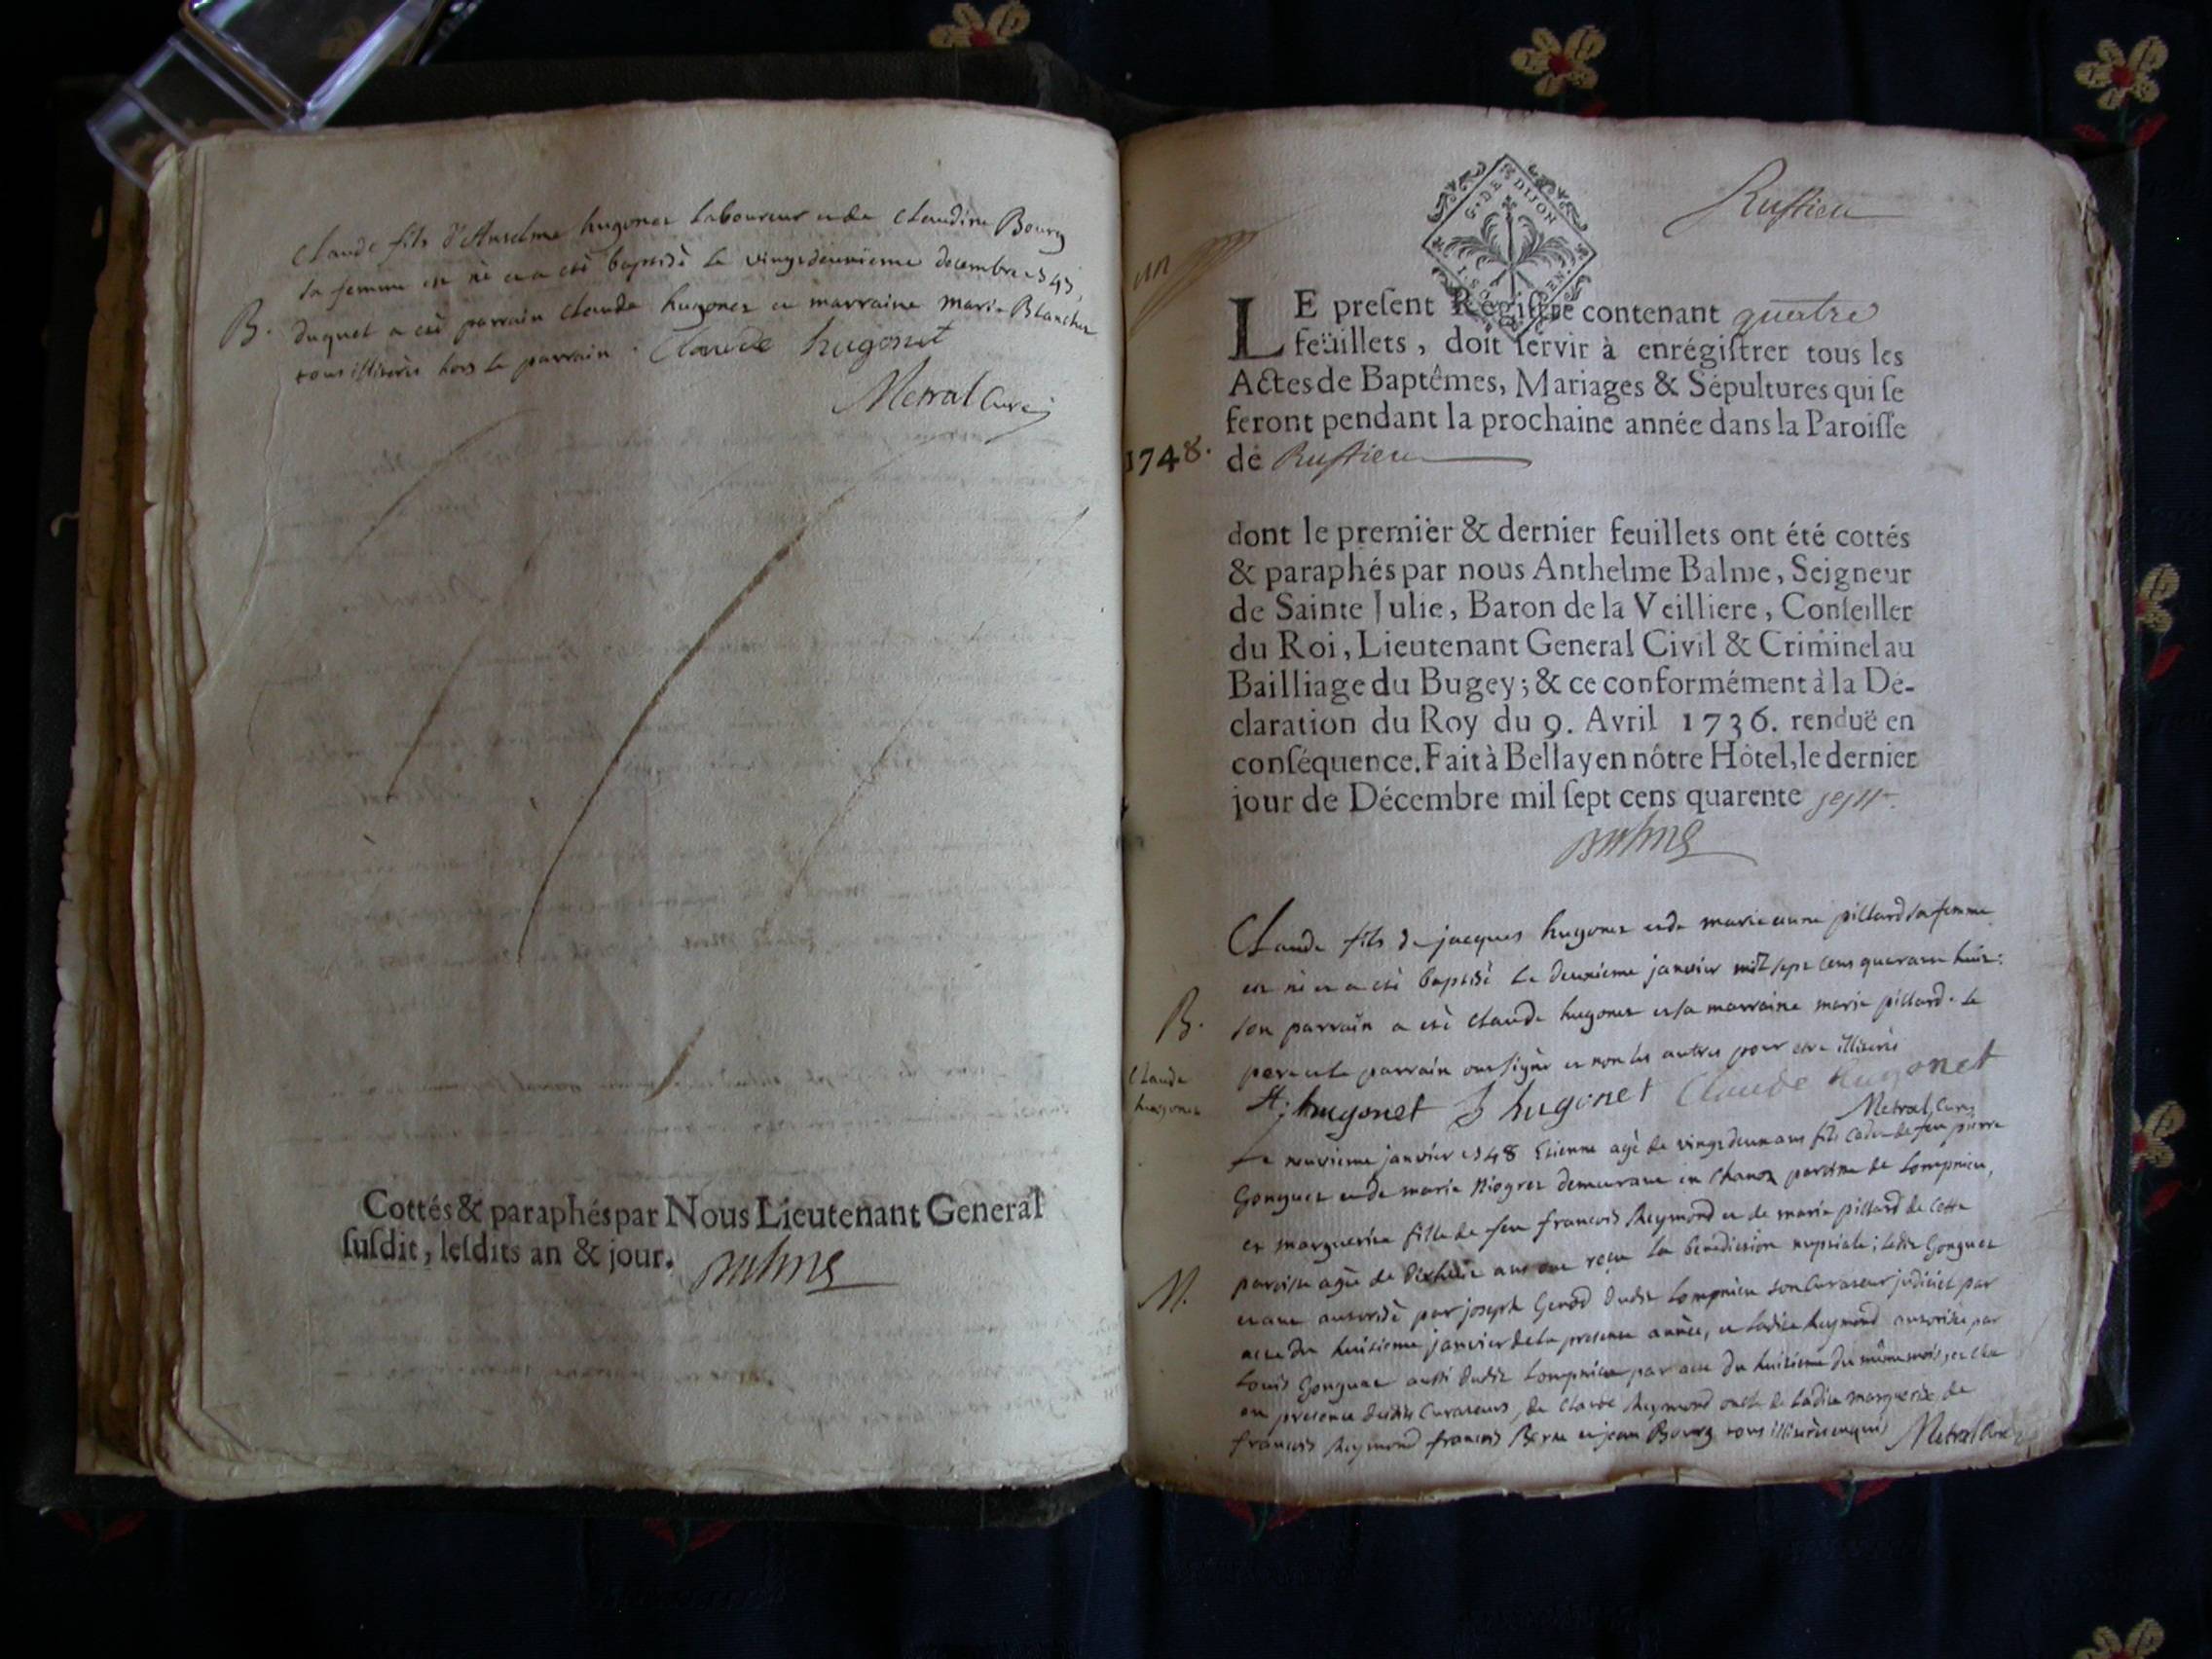 Claude fils d'Anselme hugonet laboureur et de Claudine Bourg
sa femme est né et a eté baptisé le vingtdeuxieme decembre 1747,
B. duquel a eté parrain Claude hugonet et marraine marie Blanchet
tous illiterés hors le parrain. Claude hugonet
Metral Curé
Cottés & paraphés par Nous Lieutenant General
ſuſdit, leſdits an & jour. Balme
Ruffieu
G. DE DIJON
un
LE preſent Régiſtre contenant quatre
feüillets, doit ſervir à enrégiſtrer tous les
Actes de Baptêmes, Mariages & Sépultures qui ſe
feront pendant la prochaine année dans la Paroiſſe
1748. de Ruffieu
dont le premier & dernier feuillets ont été cottés
& paraphés par nous Anthelme Balme, Seigneur
de Sainte Julie, Baron de la Veilliere, Conſeiller
du Roi, Lieutenant General Civil & Criminel au
Bailliage du Bugey; & ce conformément à la Dé-
claration du Roy du 9. Avril 1736. renduë en
conſéquence. Fait à Bellay en nôtre Hôtel, le dernier
jour de Décembre mil ſept cens quarente sept.
Balme
Claude fils de jacques hugonet et de marie anne pillard sa femme
est né et a eté baptisé le deuxieme janvier mil sept cens quarante huit:
B. son parrain a eté Claude hugonet et sa marraine marie pillard. le
Claude pere et le parrain ont signé et non les autres pour etre illiterés
hugonet A; hugonet J hugonet Claude hugonet
Metral Curé
Le neuvieme janvier 1748 Etienne agé de vingtdeux ans fils de feu pierre
Gonguet et de marie Niogret demeurant en Chanoz paroisse de Lompnieu,
et marguerite fille de feu francois Reymond et de marie pillard de cette
paroisse agée de dixhuit ans ont reçu la benediction nuptiale; ledit Gonguet
M. etant autorisé par joseph Genod dudit Lompnieu son Curateur judiciel par
acte du huitieme janvier de la presente année, et ladite Reymond autorisée par
Louis Gonguet aussi dudit Lompnieu par acte du huitieme du même mois, et
en presence desdits Curateurs, de Claude Reymond oncle de ladite marguerite, de
francois Reymond francois Berne et jean Bourg tous illiterés enquis Metral Curé